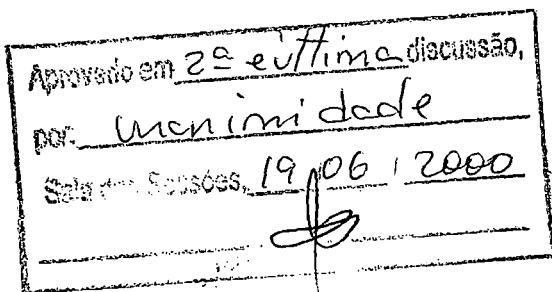 Aprovado em 2ª e última discussão,
por: unanimidade
Sala das Sessões, 19 / 06 / 2000